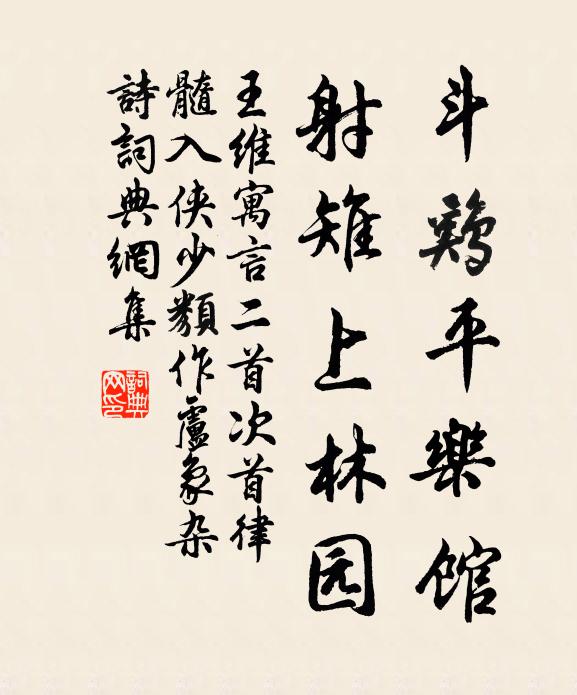 斗鷄平樂馆
射雉上林园
王維寓言二首次首律
髓入侠少類作盧象杂
詩詞典網集
詞典网印